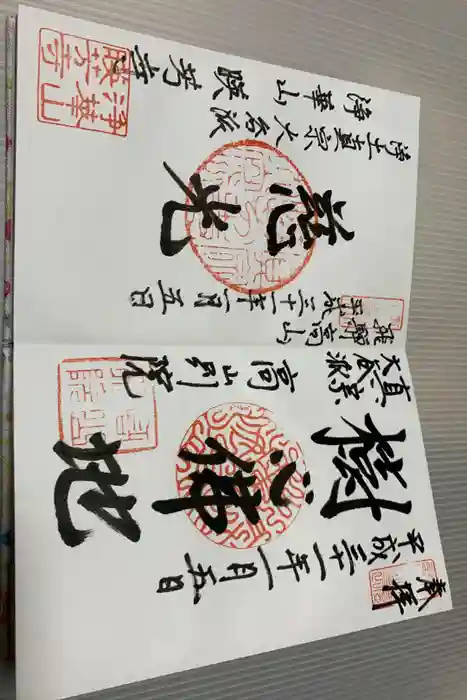 奉拝
平成三十一年一月五日
樹心佛地
真宗
大谷派
高山別院
飛騨高山
平成三十一年一月五日
慈光
浄土真宗大谷派
浄華山 暎芳寺
浄華山
暎芳寺